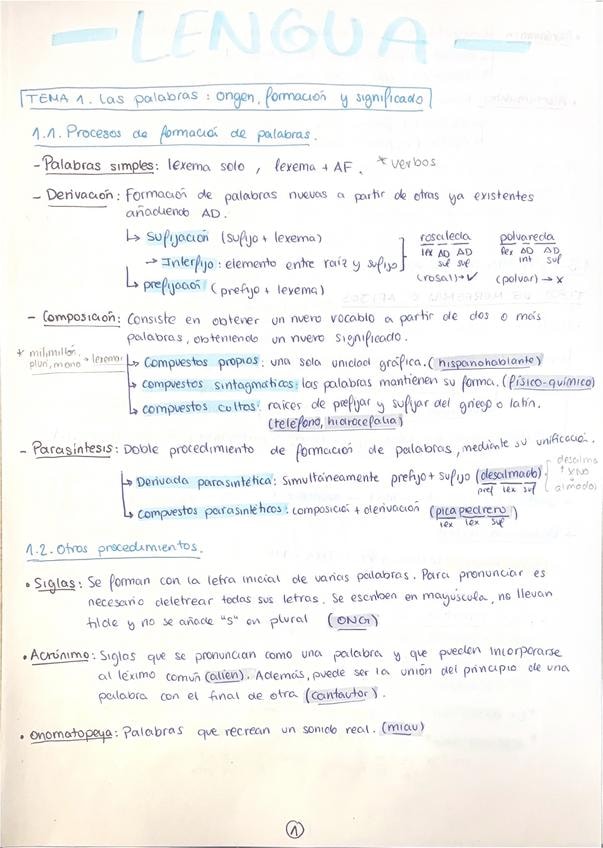 LENGUA
TEMA 1. Las palabras: origen, formación y significado
1.1. Procesos de formación de palabras.
- Palabras simples: lexema solo, lexema + AF. * verbos
- Derivación: Formación de palabras nuevas a partir de otras ya existentes
añadiendo AD.
↳ Sufijación (sufijo + lexema)
→ Interfijo: elemento entre raíz y sufijo
↳ prefijación (prefijo + lexema)
rosaleda
lex AD AD
suf suf
(rosal) → ✓
polvareda
lex AD AD
int suf
(polvar) → x
- Composición: Consiste en obtener un nuevo vocablo a partir de dos o más
palabras, obteniendo un nuevo significado.
* milimillón,
pluri, mono → lexema
↳ Compuestos propios: una sola unidad gráfica. (hispanohablante)
↳ compuestos sintagmáticos: las palabras mantienen su forma. (físico-químico)
↳ compuestos cultos: raíces de prefijar y sufijar del griego o latín.
(teléfono, hidrocefalia)
- Parasíntesis: Doble procedimiento de formación de palabras, mediante su unificación.
↳ Derivada parasintética: Simultáneamente prefijo + sufijo (desalmado).
pref lex suf
desalma
↑ x No
almado
↳ Compuestos parasintéticos: composición + derivación (picapedrero)
lex lex suf
1.2. Otros procedimientos.
• Siglas: Se forman con la letra inicial de varias palabras. Para pronunciar es
necesario deletrear todas sus letras. Se escriben en mayúscula, no llevan
tilde y no se añade "s" en plural (ONG)
• Acrónimo: Siglas que se pronuncian como una palabra y que pueden incorporarse
al léximo común (alien). Además, puede ser la unión del principio de una
palabra con el final de otra (cantautor).
• Onomatopeya: Palabras que recrean un sonido real. (miau)
1